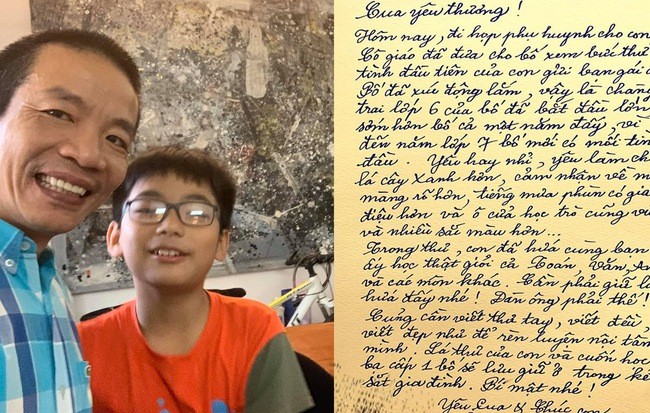 Cua yêu thương!
Hôm nay, đi họp phụ huynh cho con
Cô giáo đã đưa cho bố xem bức thư
tình đầu tiên của con gửi bạn gái
Bố đã xúc động lắm, vậy là chàng
trai lớp 6 của bố đã bắt đầu lớn
sớm hơn bố cả một năm đấy, vì
đến năm lớp 7 bố mới có mối tìn
đầu. Yêu hay nhỉ, yêu làm ch
lá cây xanh hơn, cảm nhận về m
màng rõ hơn, tiếng mưa phùn có gia
điệu hơn và ô cửa học trò cũng vu
và nhiều sắc màu hơn...
Trong thư, con đã hứa cùng bạn
ấy học thật giỏi cả Toán, Văn, An
và các môn khác. Cần phải giữ l
hứa đấy nhé! Đàn ông phải thế!
Cũng cần viết thư tay, viết đều,
viết đẹp như để rèn luyện nội tâ
mình. Lá thư của con và cuốn học
bạ cấp 1 bố sẽ lưu giữ ở trong ké
sắt gia đình. Bí mật nhé!
Yêu Cua &